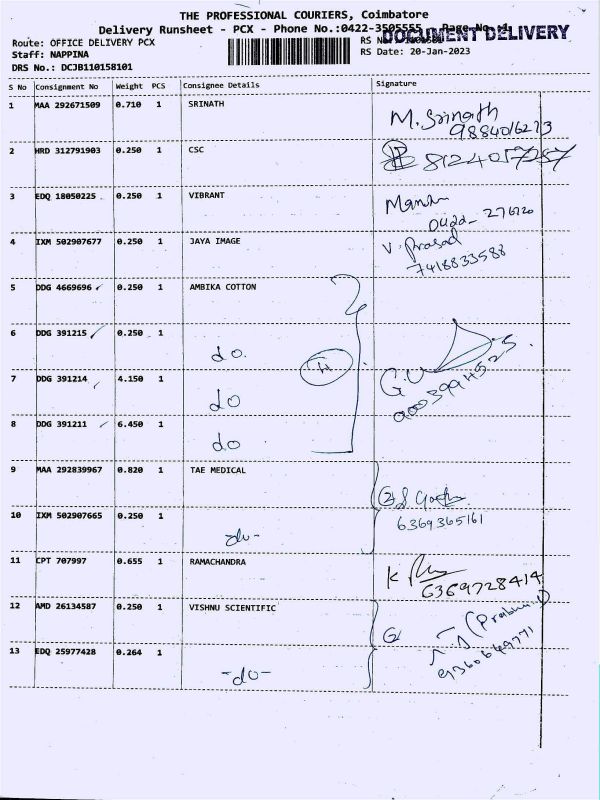 THE PROFESSIONAL COURIERS, Coimbatore
Delivery Runsheet - PCX - Phone No.:0422-3505555 Page No. 1
DOCUMENT DELIVERY
Route: OFFICE DELIVERY PCX
Staff: NAPPINA
RS Date: 20-Jan-2023
DRS No.: DCJB110158101
S No Consignment No Weight PCS Consignee Details Signature
1 MAA 292671509 0.710 1 SRINATH
M. Srinath
9884016213
2 HRD 312791903 0.250 1 CSC
3 EDQ 18050225 0.250 1 VIBRANT
4 IXM 502907677 0.250 1 JAYA IMAGE
V. Prasad
7418833588
5 DDG 4669696 0.250 1 AMBIKA COTTON
6 DDG 391215 0.250 1
do.
7 DDG 391214 4.150 1
do
8 DDG 391211 6.450 1
do
9 MAA 292839967 0.820 1 TAE MEDICAL
10 IXM 502907665 0.250 1
-do-
6369365161
11 CPT 707997 0.655 1 RAMACHANDRA
6369728414
12 AMD 26134587 0.250 1 VISHNU SCIENTIFIC
13 EDQ 25977428 0.264 1
-do-